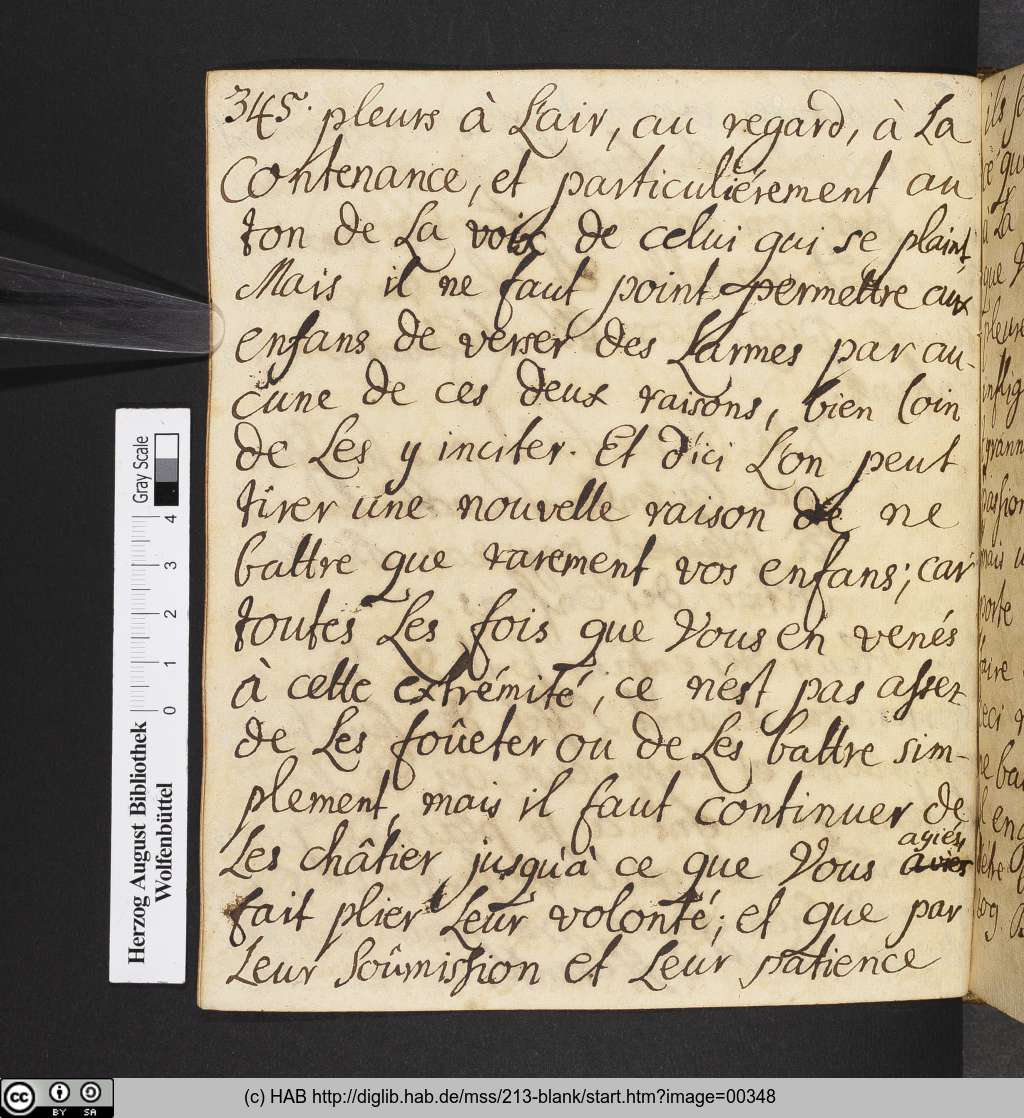 345. pleurs à L'air, au regard, à La
Contenance, et particuliérement au
ton de La voix de celui qui se plaint,
Mais il ne faut point permettre aux
enfans de verser des Larmes par au-
cune de ces deux raisons, bien loin
de Les y inciter. Et d'ici L'on peut
tirer une nouvelle raison de ne
battre que rarement vos enfans; car
toutes Les fois que Vous en venés
à cette extrémité, ce n'est pas assez
de Les foûeter ou de Les battre sim-
plement, mais il faut continuer de
Les châtier jusqu'à ce que Vous ayiés
fait plier Leur volonté; et que par
Leur Soûmission et Leur patience
Herzog August Bibliothek
Wolfenbüttel
Gray Scale
0 1 2 3 4
cc BY SA
(c) HAB http://diglib.hab.de/mss/213-blank/start.htm?image=00348